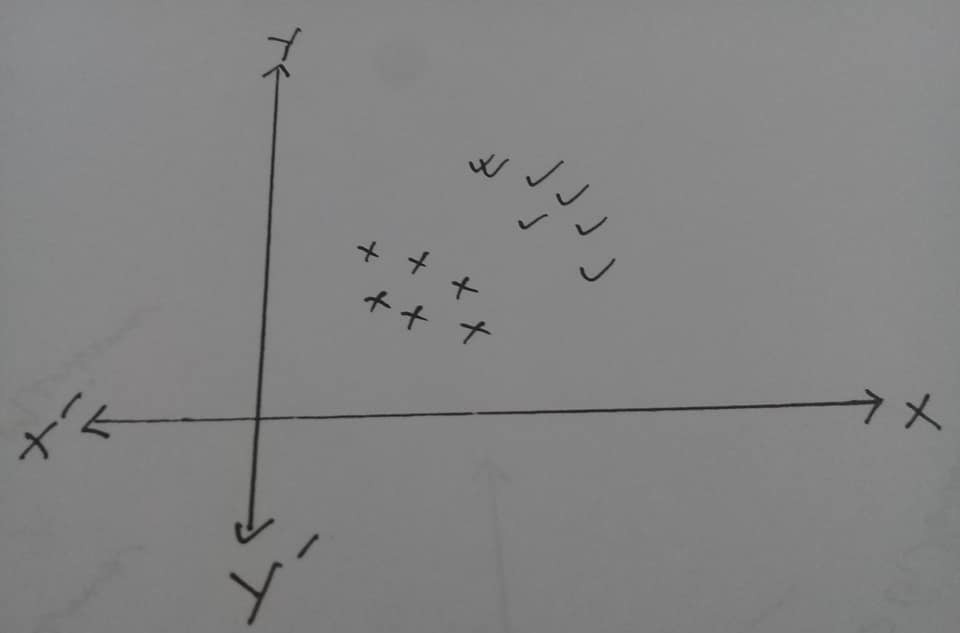 Y
X'
X
Y'